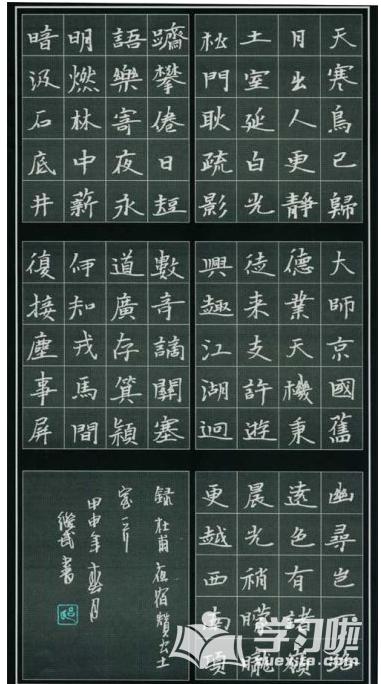 天寒鳥已歸
月出人更靜
土室延白光
松門耿疏影
躋攀倦日短
語樂寄夜永
明燃林中薪
暗汲石底井
大師京國舊
德業天機秉
從来支許遊
興趣江湖迥
數奇謫關塞
道廣存箕穎
何知戎馬間
復接塵事屏
幽尋豈一路
遠色有諸嶺
晨光稍曚曨
更越西南頂
録杜甫夜宿贊公土
室一首
甲申年月
繼武書
学习啦
xuexila.com